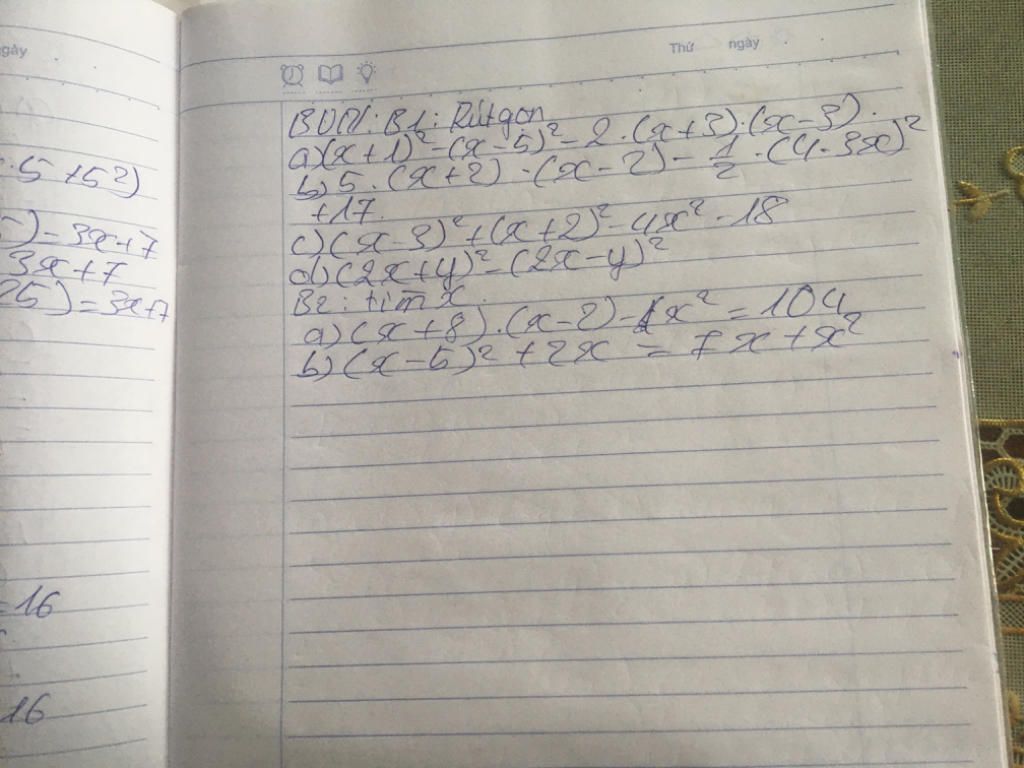 ngày
: 5 + 5²)
) - 3x + 7
3x + 7
25) = 3x + 7
= 16
16
Thứ ngày
BVN: B1: Rút gọn
a) (x + 1)² - (x - 5)² - 2 . (x + 3) . (x - 3).
b) 5 . (x + 2) . (x - 2) - 1/2 . (4 - 3x)²
+ 17.
c) (x - 3)² + (x + 2)² - 4x² - 18
d) (2x + y)² - (2x - y)²
B2: tìm x.
a) (x + 8) . (x - 2) - x² = 104
b) (x - 5)² + 2x = 7x + x²